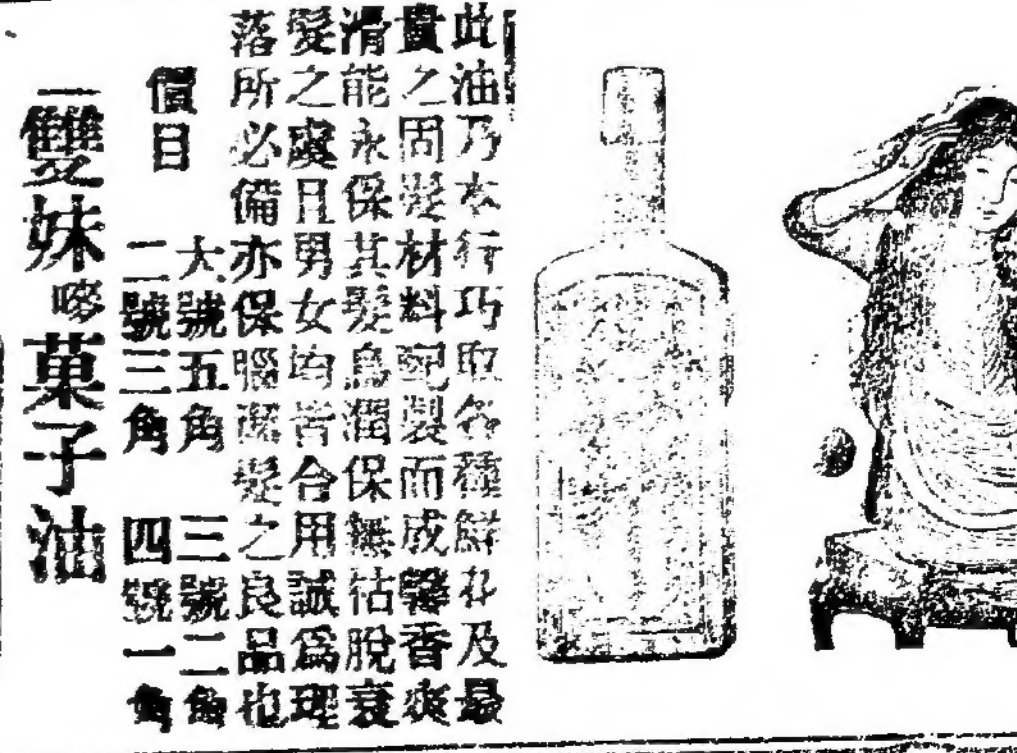 此油乃本行巧取各種鮮花及最
貴之固髮材料配製而成馨香爽
滑能永保其髮烏潤保無枯脫衰
髮之虞且男女均皆合用誠爲理
落所必備亦保腦潔髮之良品也
價目
大號五角 三號二角
二號三角 四號一角
雙妹嘜菓子油